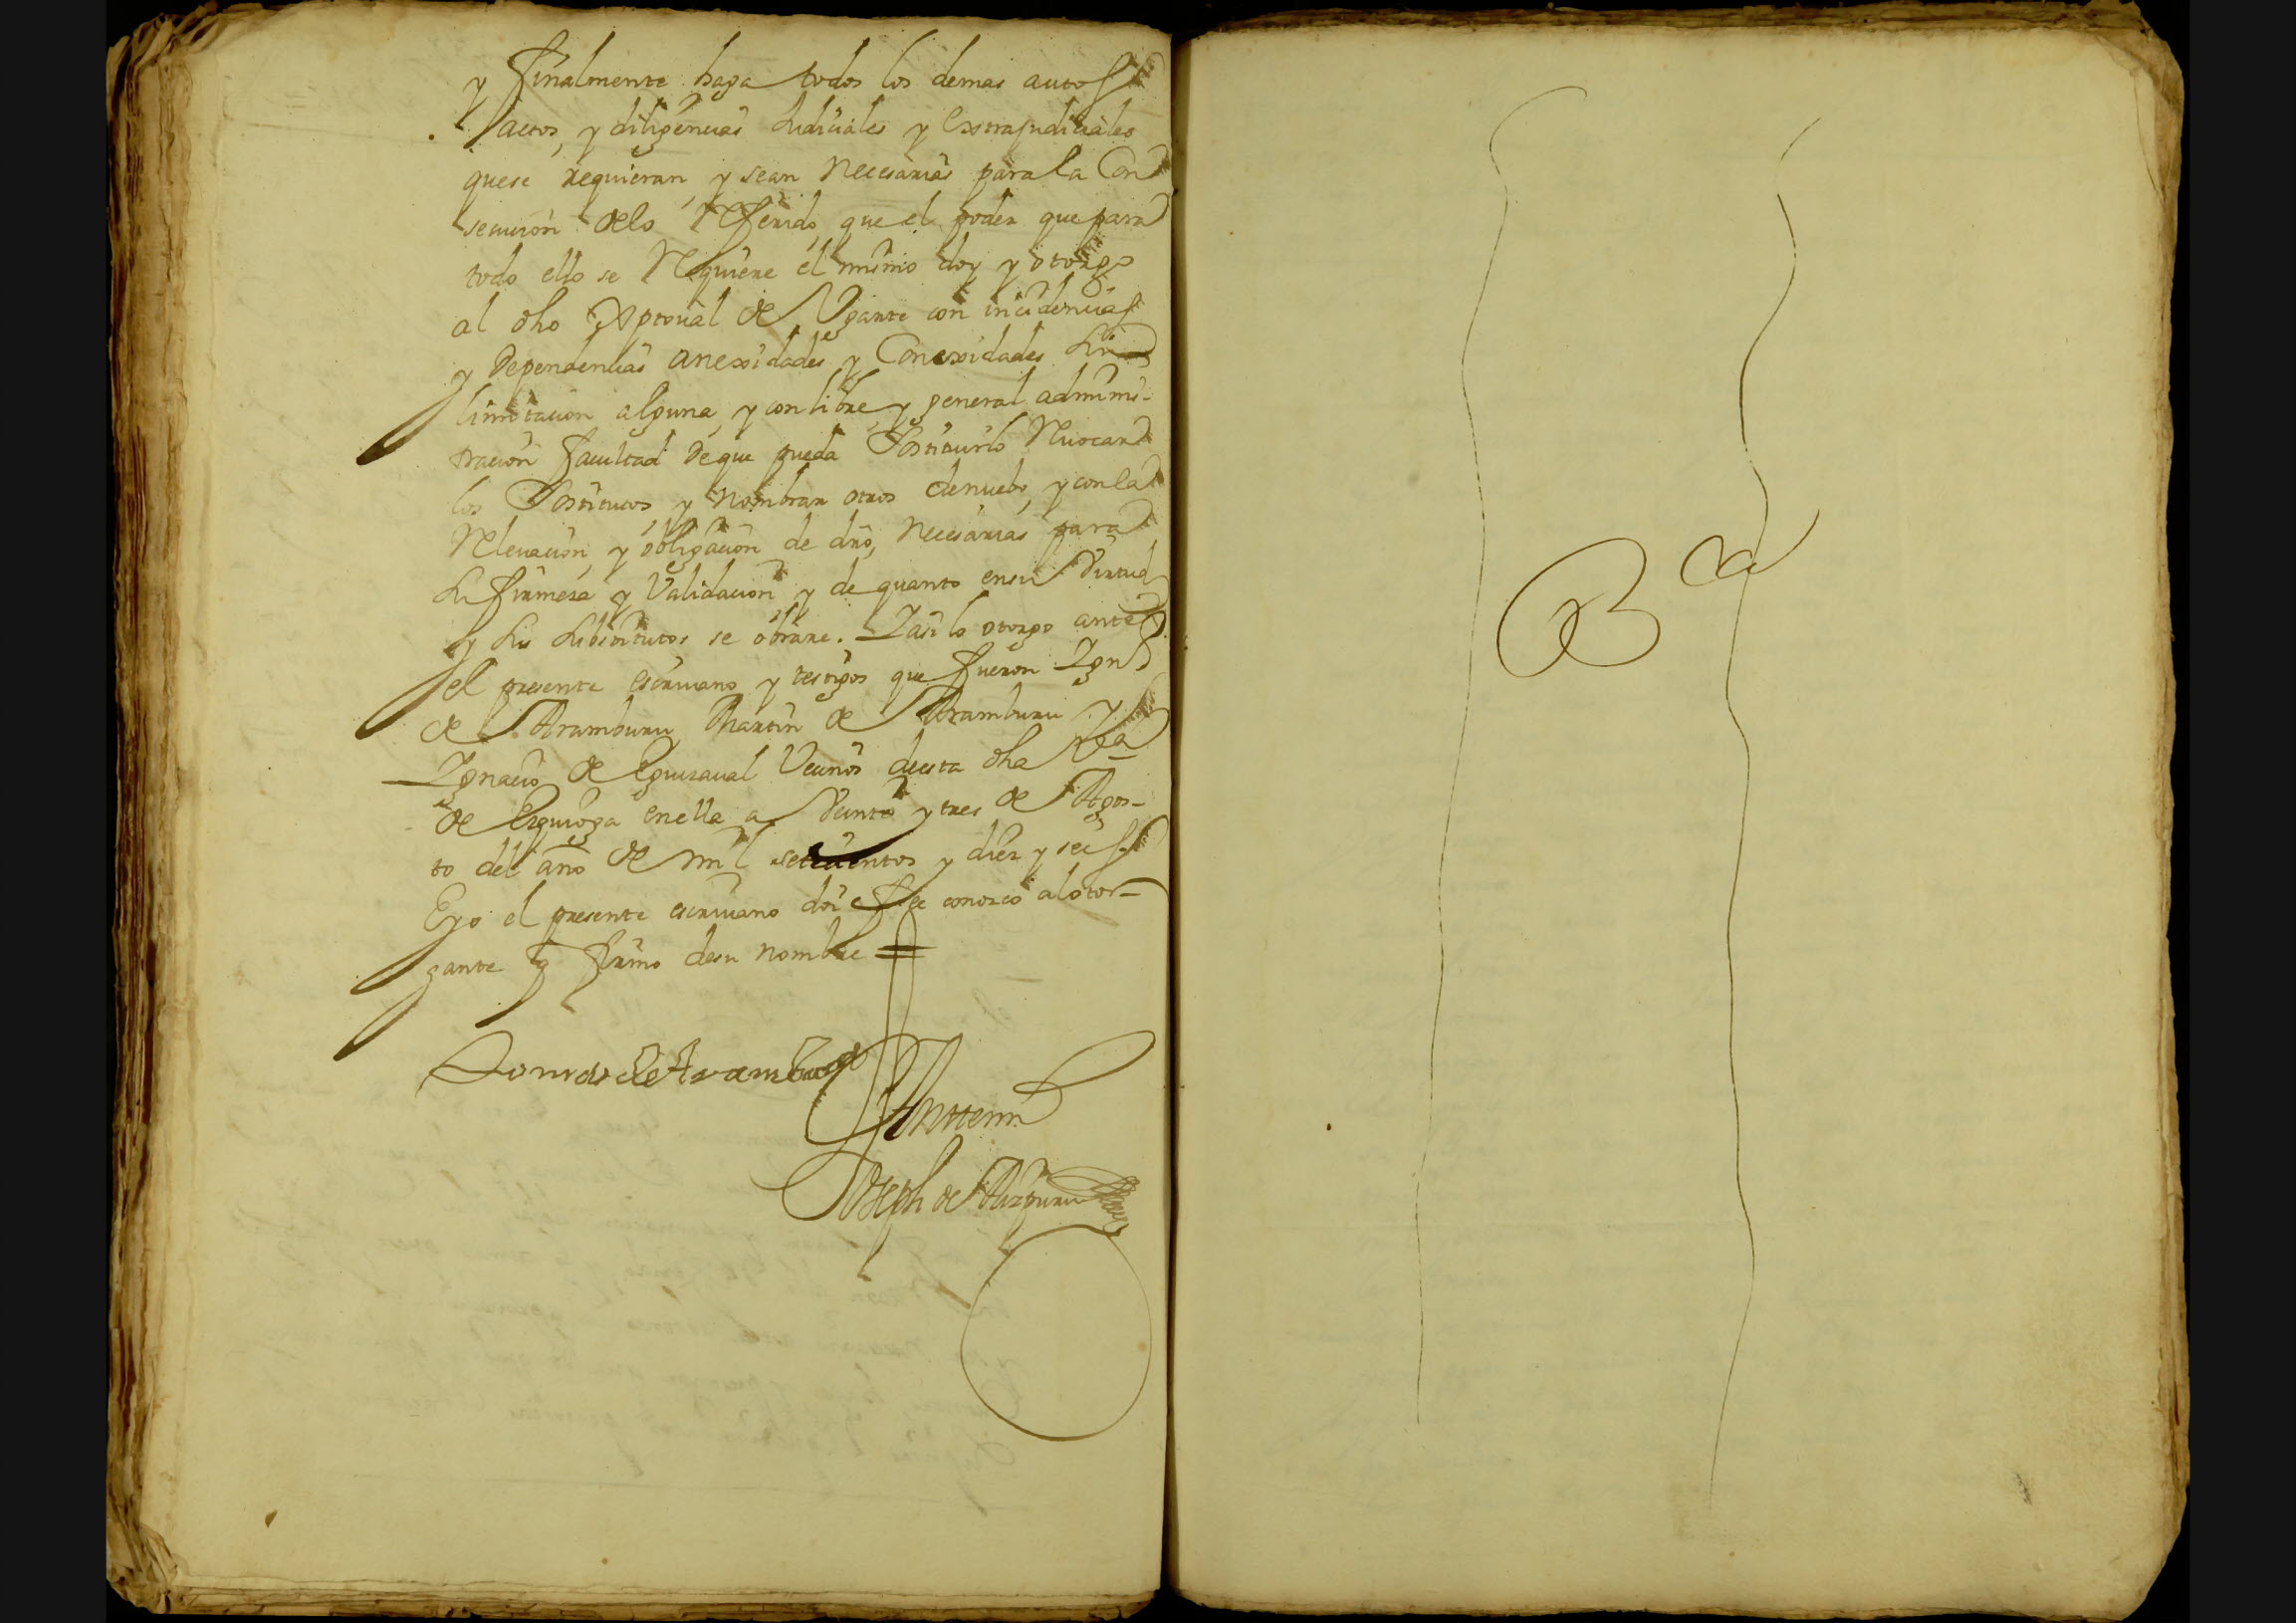 y finalmente haga todos los demas autos
actos, y diligencias Judiciales y Extrajudiciales
quese requieran, y sean necesarias para la Con
secucion delo referido, que el poder que para
todo ello se requiere el mismo doy y otorgo
al dho Xptoual de Ugarte con incidencias
y dependencias anexsidades y Conexsidades sin
limitacion alguna, y con libre, y general adminis-
tracion facultad deque pueda Sostituirlo Reuocar
los Sostitutos, y nombrar otros denuebo, y con la
Releuacion, y obligacion de dro, necesarias para
su firmesa y Validacion y de quanto ensu Virtud
y sus substitutos se obrare. Yasi lo otorgo ante
el presente escriuano y testigos que fueron Ygn
de Aramburu, Martin de Aramburu y
Ygnacio de Eguzaual Vecinos desta dha Va
de Ezquioga enella a Veinte y tres de Agos-
to del año de mil setecientos y diez y seis
Eyo el presente escriuano doi fee conozco alotor-
gante q firmo desu nombre =
Domas de Aramburu
Antemi
Joseph de Aizpuru
Ba